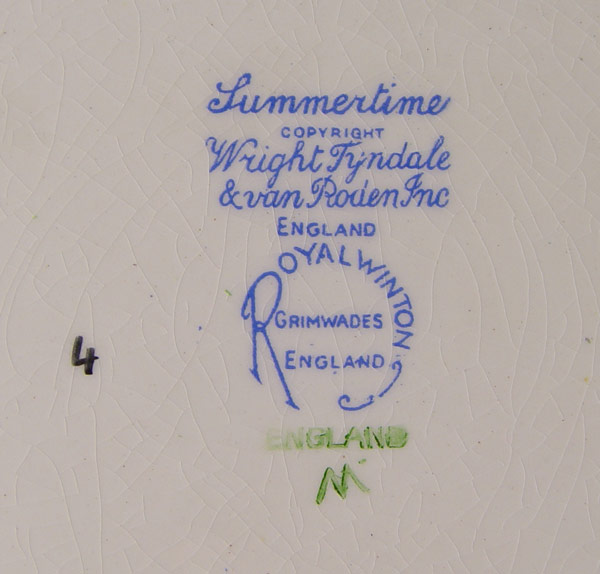 Summertime
COPYRIGHT
Wright Tyndale
& van Roden Inc
ENGLAND
ROYAL WINTON
GRIMWADES
ENGLAND
4
ENGLAND
M